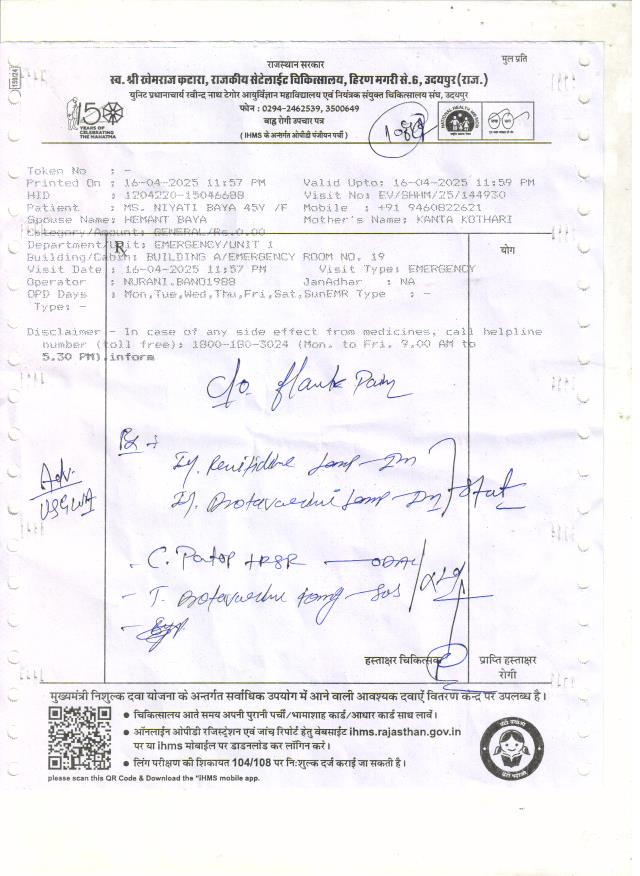 मूल प्रति
राजस्थान सरकार
स्व. श्री खेमराज कटारा, राजकीय सेटेलाईट चिकित्सालय, हिरण मगरी से.6, उदयपुर (राज.)
युनिट प्रधानाचार्य रवीन्द्र नाथ टेगोर आयुर्विज्ञान महाविद्यालय एवं नियंत्रक संयुक्त चिकित्सालय संघ, उदयपुर
फोन : 0294-2462539, 3500649
बाह्य रोगी उपचार पत्र
( IHMS के अन्तर्गत ओपीडी पंजीयन पर्ची )
150 YEARS OF CELEBRATING THE MAHATMA
NATIONAL HEALTH MISSION
Token No : -
Printed On : 16-04-2025 11:57 PM Valid Upto: 16-04-2025 11:59 PM
HID : 1204220-15046688 Visit No: EV/SHHM/25/144930
Patient : MS. NIYATI BAYA 45Y /F Mobile : +91 9460822621
Spouse Name: HEMANT BAYA Mother's Name: KANTA KOTHARI
Category/Amount: GENERAL/Rs.0.00
Department/Unit: EMERGENCY/UNIT 1
Rx
योग
Building/Cabin: BUILDING A/EMERGENCY ROOM NO. 19
Visit Date : 16-04-2025 11:57 PM Visit Type: EMERGENCY
Operator : NURANI.BANO1988 JanAadhar : NA
OPD Days : Mon,Tue,Wed,Thu,Fri,Sat,SunEMR Type : -
Type: -
Disclaimer - In case of any side effect from medicines, call helpline
number (toll free): 1800-180-3024 (Mon. to Fri. 9.00 AM to
5.30 PM).inform
c/o. flank Pain
Rx
Adv.
USG WA
Stat
हस्ताक्षर चिकित्सक
प्राप्ति हस्ताक्षर
रोगी
मुख्यमंत्री निशुल्क दवा योजना के अन्तर्गत सर्वाधिक उपयोग में आने वाली आवश्यक दवाऐं वितरण केन्द्र पर उपलब्ध है।
● चिकित्सालय आते समय अपनी पुरानी पर्ची/भामाशाह कार्ड/आधार कार्ड साथ लावें।
● ऑनलाईन ओपीडी रजिस्ट्रेशन एवं जांच रिपोर्ट हेतु वेबसाईट ihms.rajasthan.gov.in
पर या ihms मोबाईल पर डाउनलोड कर लॉगिन करे।
● लिंग परीक्षण की शिकायत 104/108 पर निःशुल्क दर्ज कराई जा सकती है।
please scan this QR Code & Download the "iHMS mobile app.